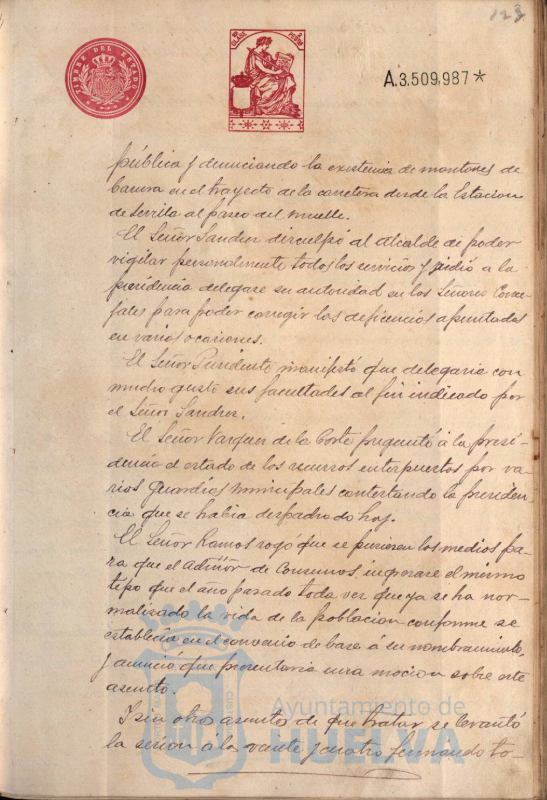 123
TIMBRE DEL ESTADO
CLASE
PESOS
A.3.509.987*
pública y denunciando la existencia de montones de
basura en el trayecto de la carretera desde la Estacion
de Sevilla al paseo del muelle.
El Señor Sandez disculpó al Alcalde de poder
vigilar personalmente todos los servicios y pidió a la
presidencia delegase su autoridad en los Señores Conce-
jales para poder corregir las deficencias apuntadas
en varias ocasiones.
El Señor Presidente manifestó que delegaria con
mucho gusto sus facultades al fin indicado por
el Señor Sandez.
El Señor Vazquez de la Corte preguntó á la presi-
dencia el estado de los recursos interpuestos por va-
rios guardias municipales contestando la presiden-
cia que se habia despachado hoy.
El Señor Ramos rogó que se pusiesen los medios pa-
ra que el Admõr de Consumos, ingresase el mismo
tipo que el año pasado toda vez que ya se ha nor-
malizado la vida de la poblacion conforme se
establecia en el convenio de base á su nombramiento,
y anunció que presentaria una mocion sobre este
asunto.
I sin otro asunto de que tratar se levantó
la sesion á la veinte y cuatro firmando to-
Ayuntamiento de
HUELVA